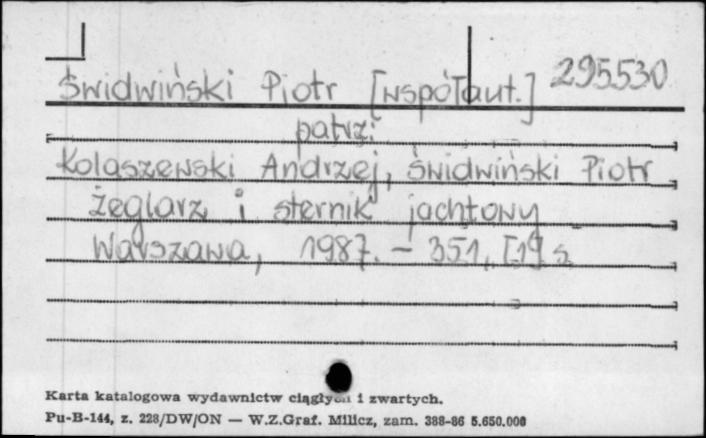 Świdwiński Piotr [współaut.] 295530
patrz:
Kolaszewski Andrzej, Świdwiński Piotr
Żeglarz i sternik jachtowy
Warszawa, 1987. – 351, [1] s.
Karta katalogowa wydawnictw ciągłych i zwartych.
Pu-B-144, z. 228/DW/ON — W.Z.Graf. Milicz, zam. 388-86 5.650.000